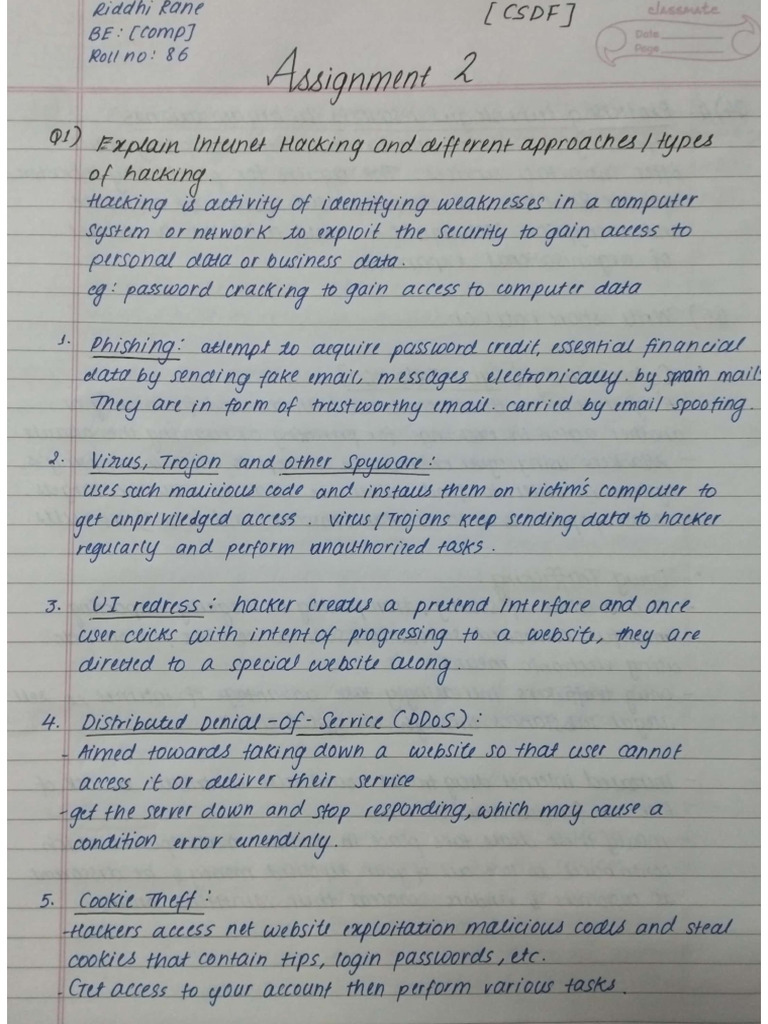 Riddhi Rane
[CSDF]
classmate
BE: [Comp]
Date
Page
Roll no: 86
Assignment 2
Q1) Explain Internet Hacking and different approaches/types
of hacking.
Hacking is activity of identifying weaknesses in a computer
system or network to exploit the security to gain access to
personal data or business data.
eg: password cracking to gain access to computer data
1. Phishing: attempt to acquire password credit, essential financial
data by sending fake email, messages electronically. by spam mails
They are in form of trustworthy email. carried by email spoofing.
2. Virus, Trojan and other spyware:
uses such malicious code and installs them on victim's computer to
get unpriviledged access. virus/Trojans keep sending data to hacker
regularly and perform unauthorized tasks.
3. UI redress: hacker creates a pretend interface and once
user clicks with intent of progressing to a website, they are
directed to a special website along.
4. Distributed Denial-of-Service (DDOS):
- Aimed towards taking down a website so that user cannot
access it or deliver their service
- get the server down and stop responding, which may cause a
condition error unendinly.
5. Cookie Theft:
- Hackers access net website exploitation malicious codes and steal
cookies that contain tips, login passwords, etc.
- Get access to your account then perform various tasks.